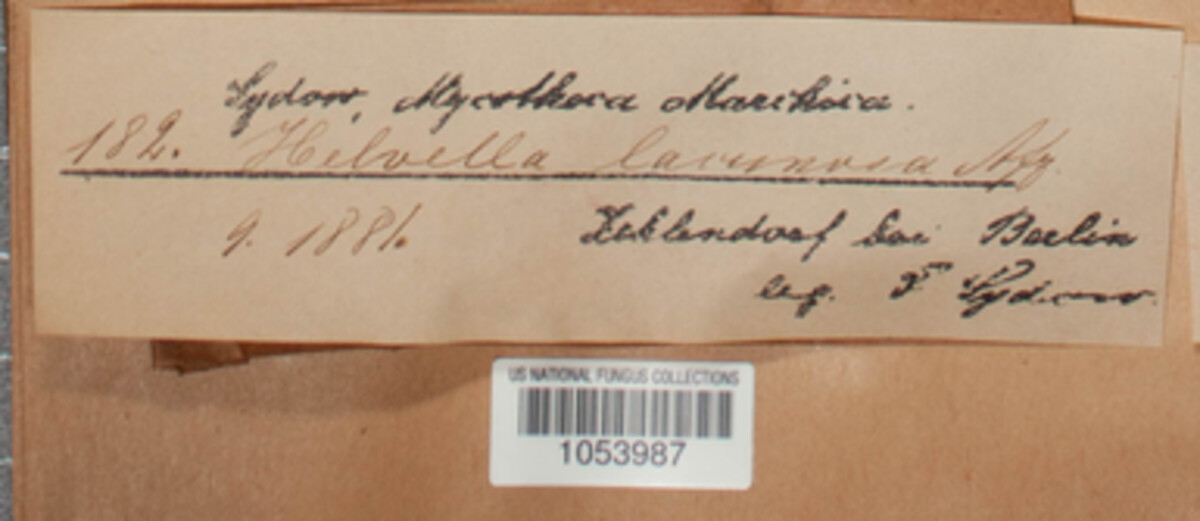 Sydow, Mycotheca Marchica.
182. Helvella lacunosa Afz.
9. 1881.
Zehlendorf bei Berlin
leg. P Sydow.
US NATIONAL FUNGUS COLLECTIONS
1053987